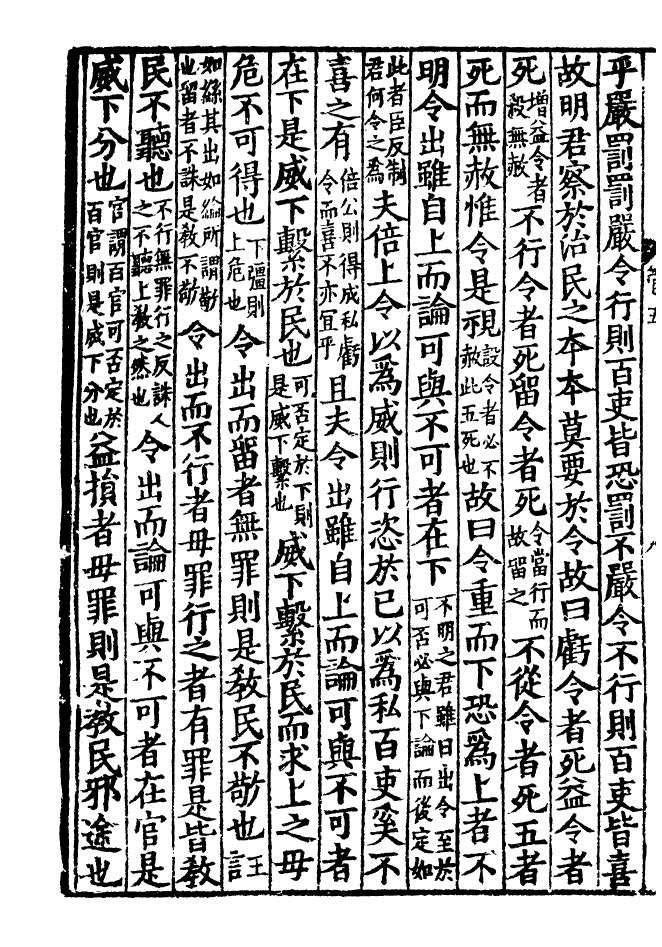 乎嚴罰罰嚴令行則百吏皆恐罰不嚴令不行則百吏皆喜
故明君察於治民之本本莫要於令故曰虧令者死益令者
死增益令者殺無赦不行令者死留令者死令當行而故留之不從令者死五者
死而無赦惟令是視設令者必不赦此五死也故曰令重而下恐爲上者不
明令出雖自上而論可與不可者在下不明之君雖日出令至於可否必與下論而後定如
此者臣反制君何令之爲夫倍上令以爲威則行恣於已以爲私百吏奚不
喜之有倍公則得成私虧令而喜不亦宜乎且夫令出雖自上而論可與不可者
在下是威下繫於民也可否定於下則是威下繫也威下繫於民而求上之毋
危不可得也下彊則上危也令出而留者無罪則是教民不敬也王言
如絲其出如綸所謂敬也留者不誅是教不敬令出而不行者毋罪行之者有罪是皆教
民不聽也不行無罪行之反誅人之不聽上教之然也令出而論可與不可者在官是
威下分也官謂百官可否定於百官則是威下分也益損者毋罪則是教民邪途也